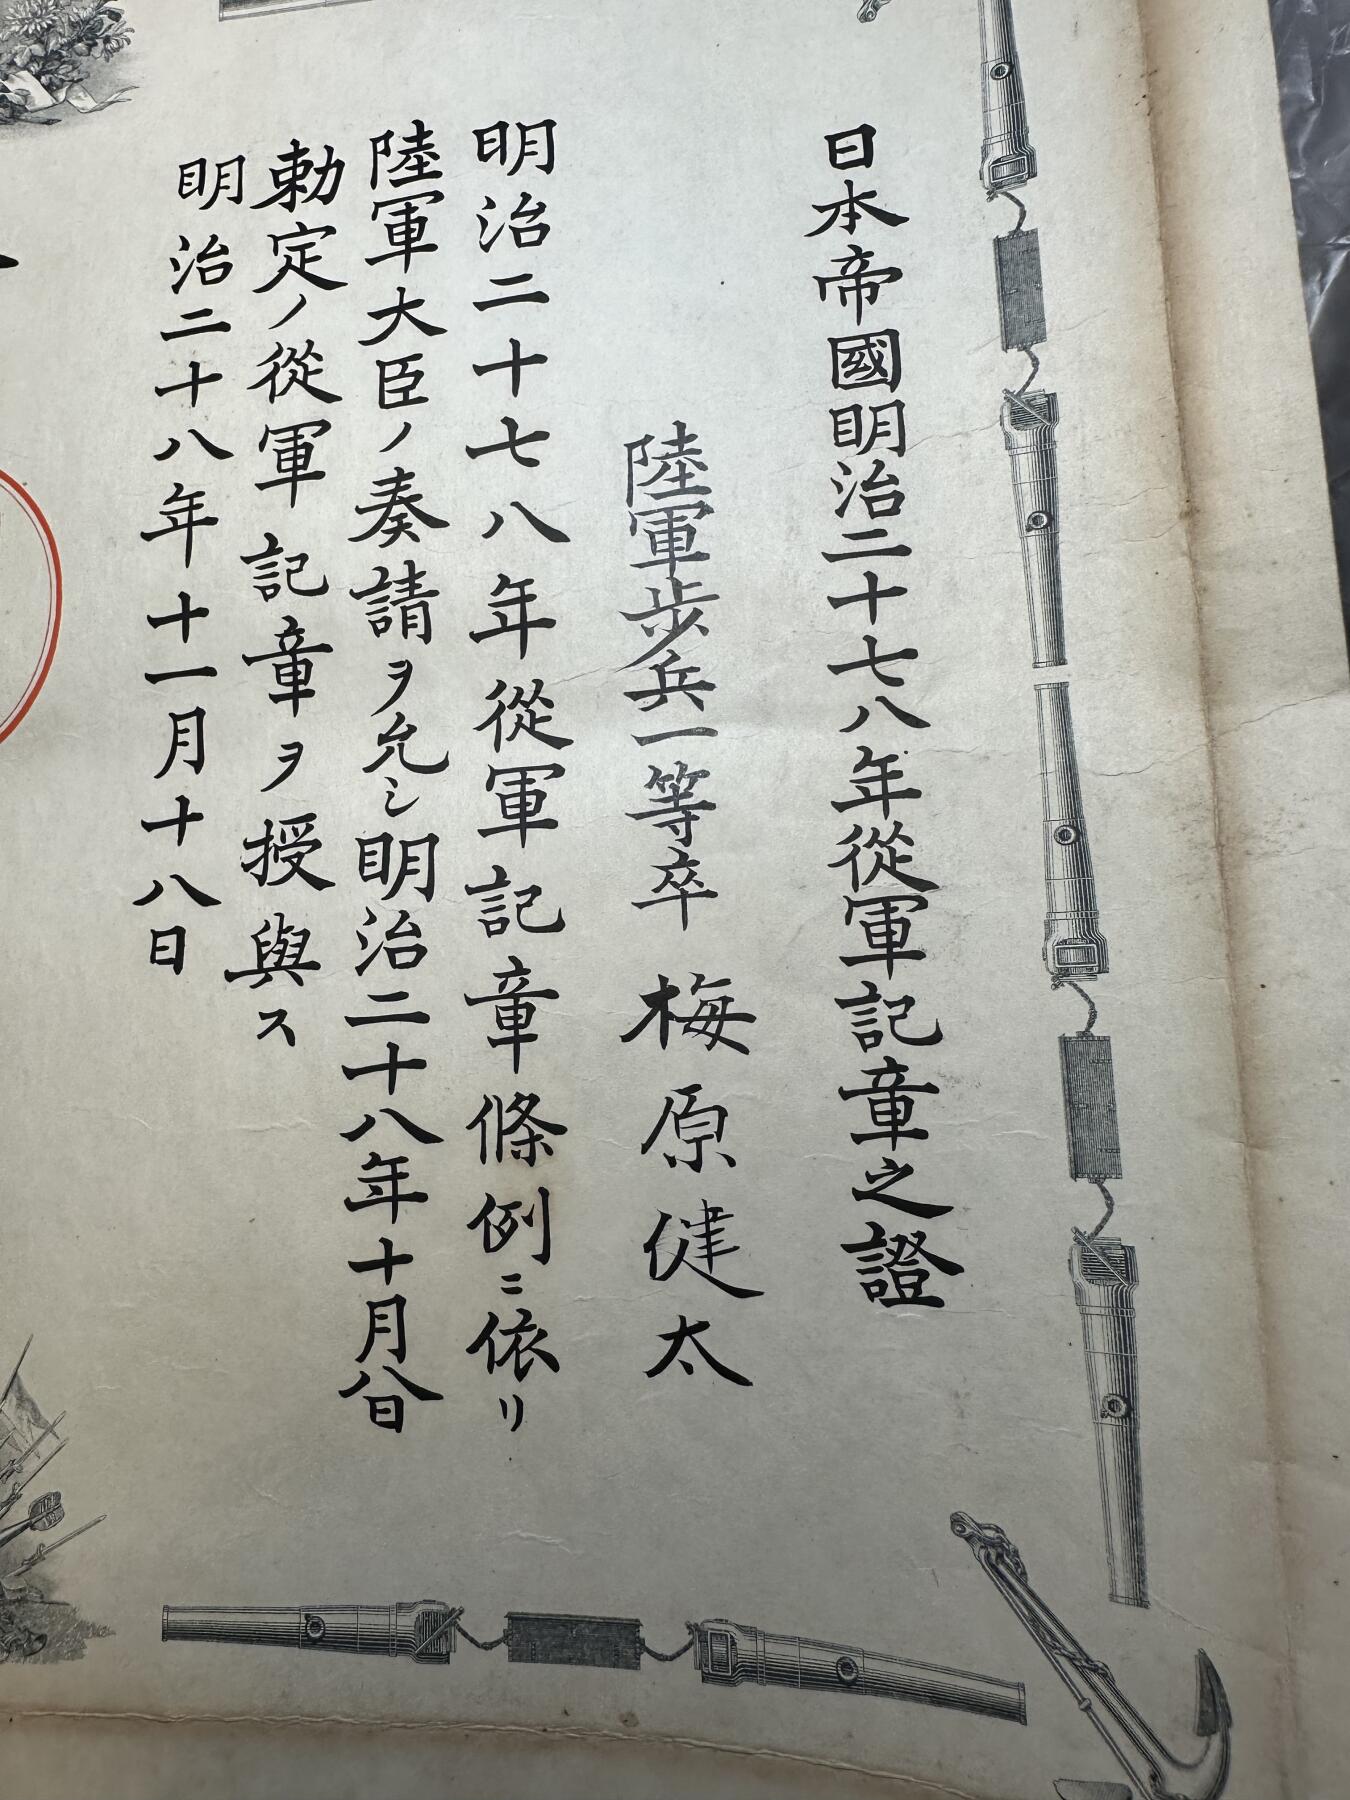 日本帝國明治二十七八年從軍記章之證
陸軍歩兵一等卒 梅原健太
明治二十七八年從軍記章條例ニ依リ
陸軍大臣ノ奏請ヲ允シ明治二十八年十月八日
勅定ノ從軍記章ヲ授與ス
明治二十八年十一月十八日